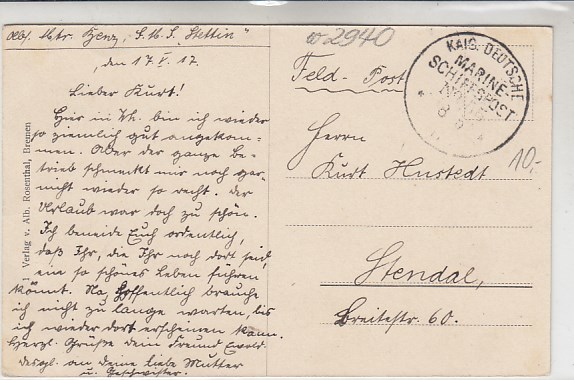 Abs. Mtr. Benz, S.M.S. „Stettin“
, den 17. V. 17.
Lieber Kurt!
Hier in Wh. bin ich wieder
so ziemlich gut angekom-
men. Aber der ganze Be-
trieb schmeckt mir noch gar-
nicht wieder so recht. Der
Urlaub war doch zu schön.
Ich beneide Euch ordentlich,
daß Ihr, die Ihr noch dort seid,
ein so schönes Leben führen
könnt. Na, hoffentlich brauche
ich nicht zu lange warten, bis
ich wieder dort erscheinen kann.
Herzl. Grüße Dein Freund Ewald.
desgl. an deine liebe Mutter
u. Geschwister.
1 Verlag v. Alb. Rosenthal, Bremen
2940
Feld-Post
KAIS. DEUTSCHE
MARINE-
SCHIFFSPOST
10,-
Herrn
Kurt Hustedt
Stendal,
Breitestr. 60.